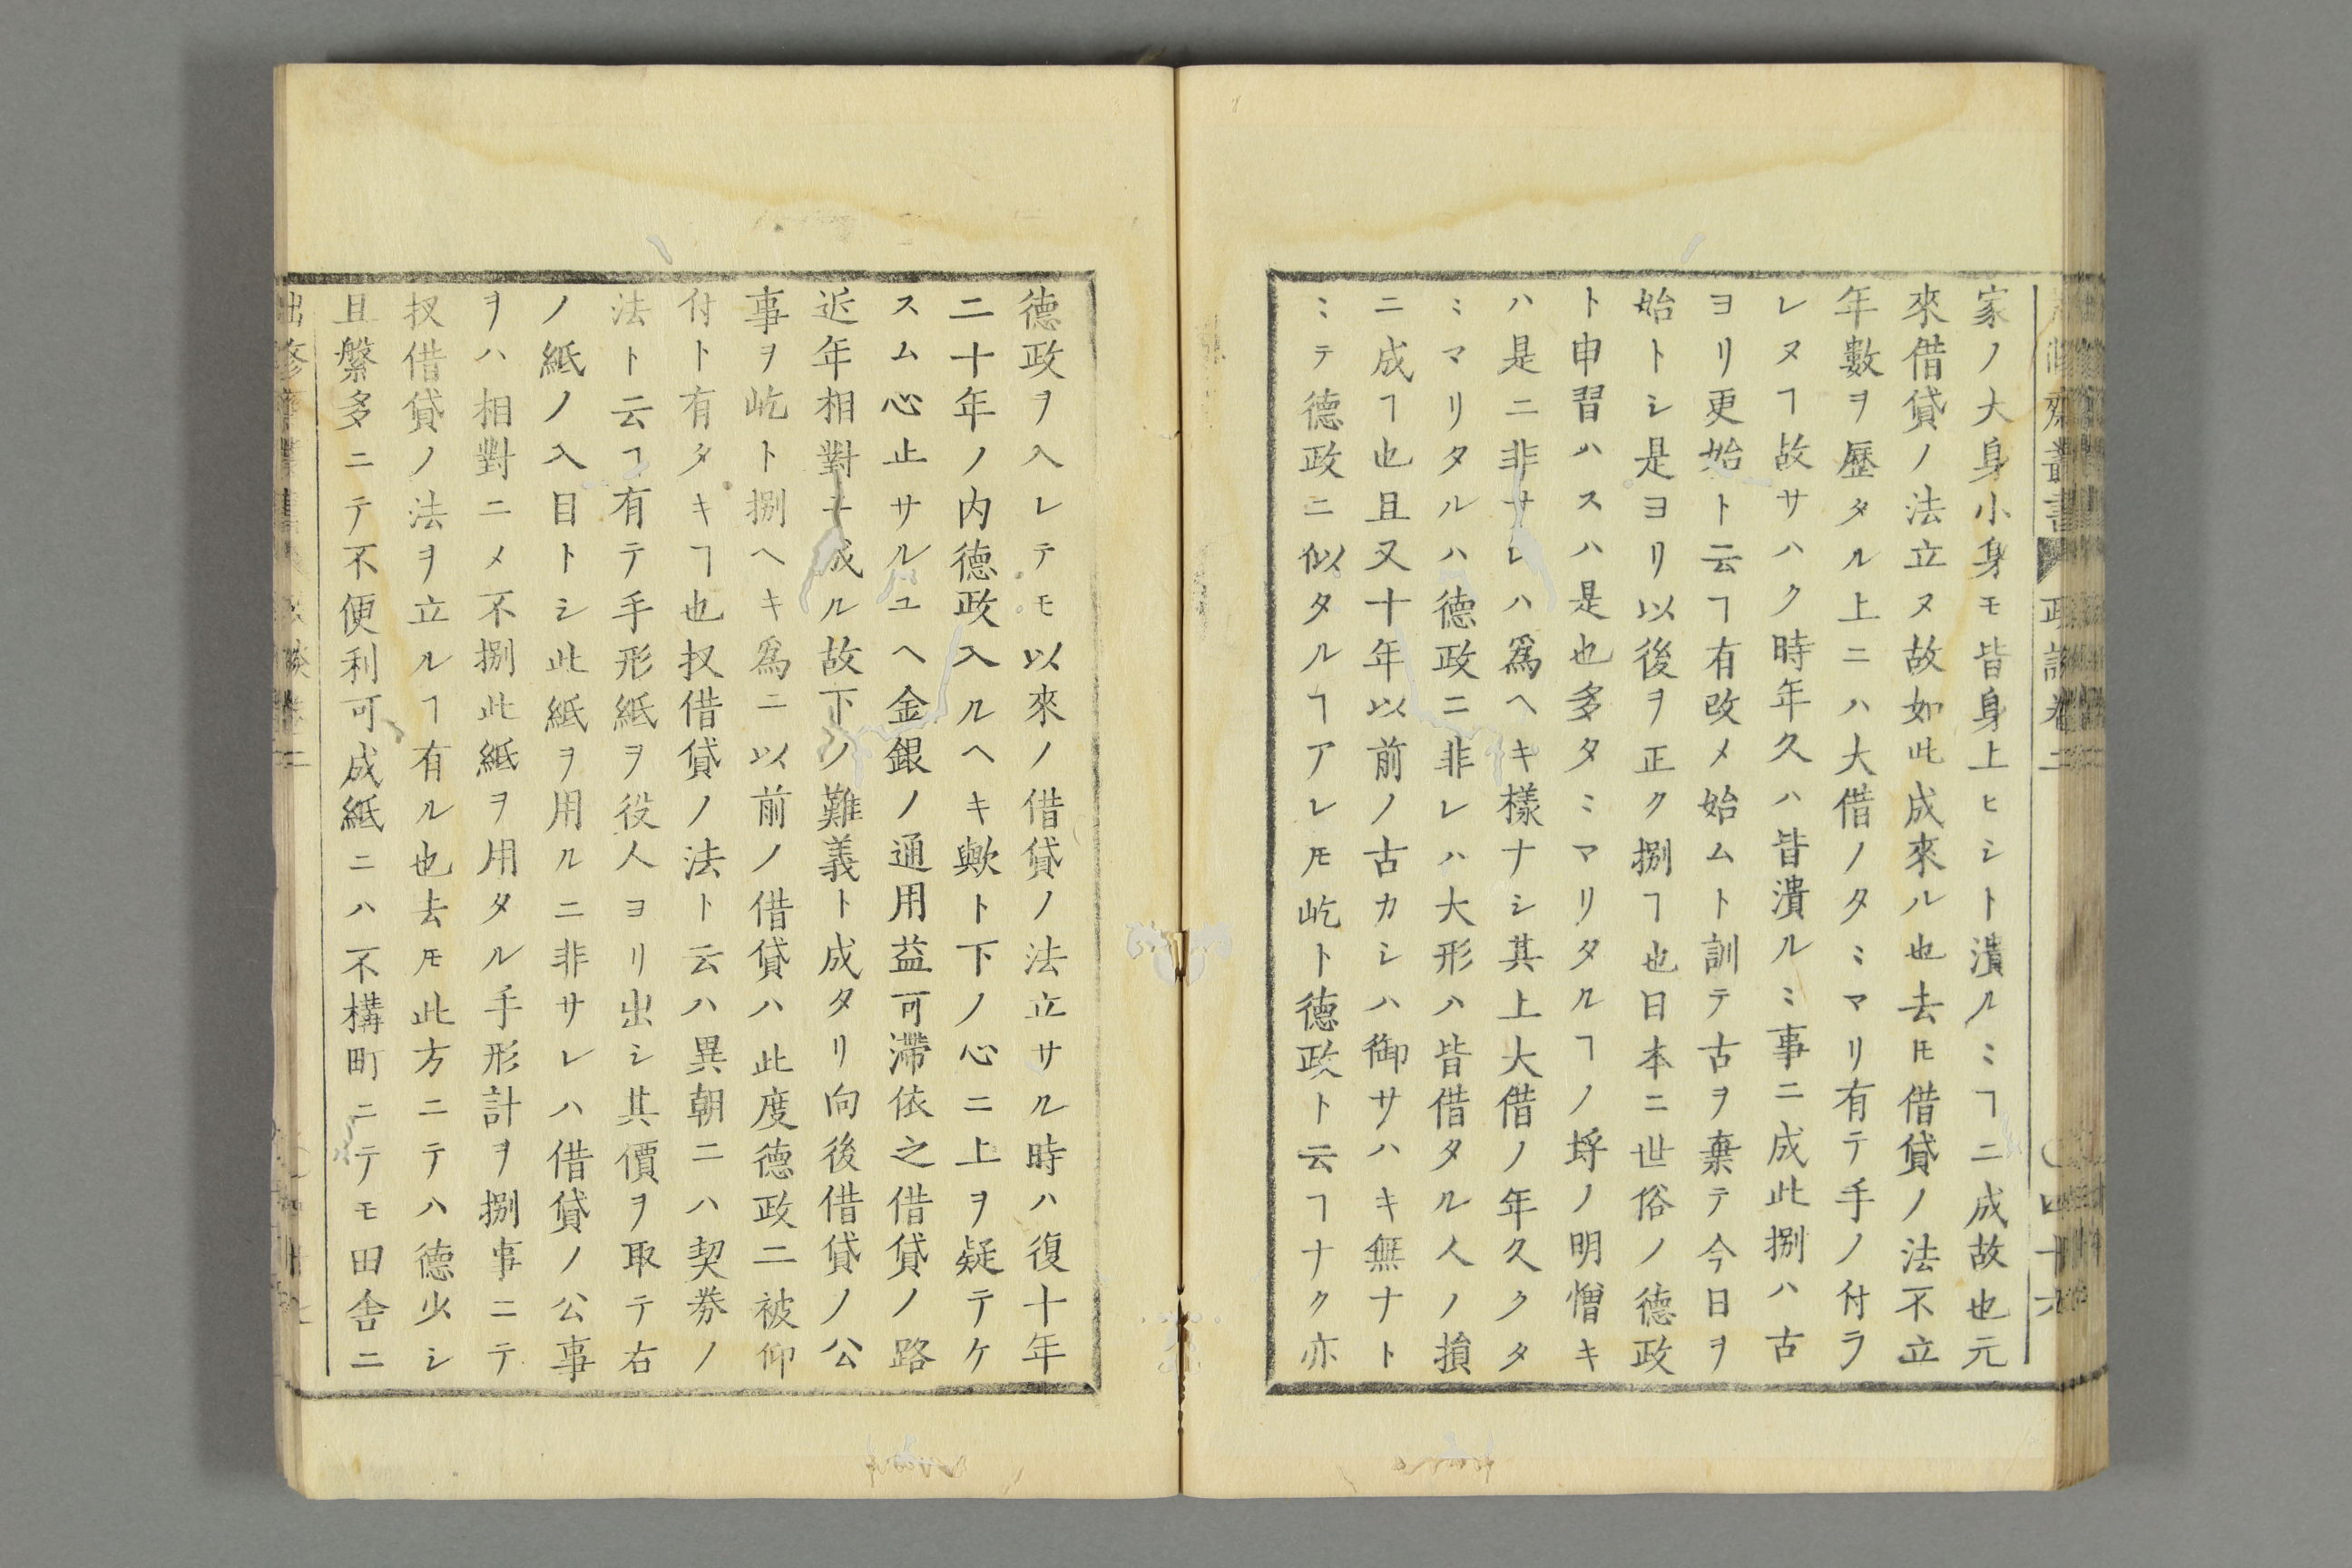 家ノ大身小身モ皆身上ヒシト潰ルミヿニ成故也元
來借貸ノ法立ヌ故如此成來ル也去𪜈借貸ノ法不立
年數ヲ歷タル上ニハ大借ノタミマリ有テ手ノ付ラ
レヌヿ故サハク時年久ハ皆潰ルミ事ニ成此捌ハ古
ヨリ更始ト云ヿ有改メ始ムト訓テ古ヲ棄テ今日ヲ
始トシ是ヨリ以後ヲ正ク捌ヿ也日本ニ世俗ノ德政
ト申習ハスハ是也多タミマリタルヿノ埒ノ明憎キ
ハ是ニ非サレハ爲ヘキ樣ナシ其上大借ノ年久クタ
ミマリタルハ德政ニ非レハ大形ハ皆借タル人ノ損
ニ成ヿ也且又十年以前ノ古カシハ御サハキ無ナト
ミテ德政ニ似タルヿアレ𪜈屹ト德政ト云ヿナク亦
德政ヲ入レテモ以來ノ借貸ノ法立サル時ハ復十年
二十年ノ內德政入ルヘキ歟ト下ノ心ニ上ヲ疑テケ
スム心止サルユヘ金銀ノ通用益可滯依之借貸ノ路
近年相對ニ成ル故下ノ難義ト成タリ向後借貸ノ公
事ヲ屹ト捌ヘキ爲ニ以前ノ借貸ハ此度德政ニ被仰
付ト有タキヿ也扠借貸ノ法ト云ハ異朝ニハ契劵ノ
法ト云ヿ有テ手形紙ヲ役人ヨリ出シ其價ヲ取テ右
ノ紙ノ入目トシ此紙ヲ用ルニ非サレハ借貸ノ公事
ヲハ相對ニメ不捌此紙ヲ用タル手形計ヲ捌事ニテ
扠借貸ノ法ヲ立ルヿ有ル也去𪜈此方ニテハ德少シ
且繁多ニテ不便利可成紙ニハ不構町ニテモ田舍ニ